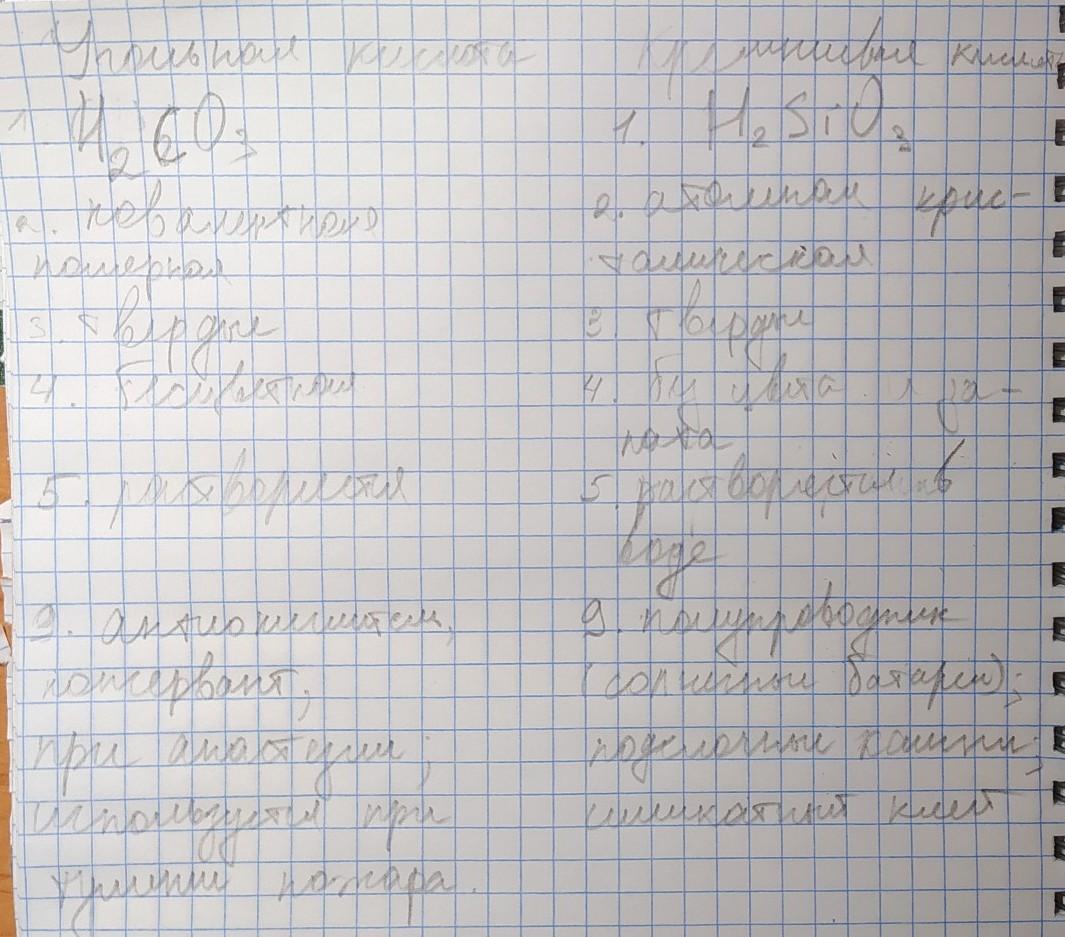 Угольная кислота
H2CO3
2. ковалентная
полярная
3. твёрдые
4. бесцветная
5. растворяется
9. антиокислитель,
консервант;
при анастезии;
используется при
тушении пожара.
Кремниевая кислота
1. H2SiO3
2. атомная крис-
талическая
3. твёрдые
4. без цвета и за-
паха
5. растворяется в
воде
9. полупроводник
(солнечные батареи);
поделочные камни;
силикатный клей